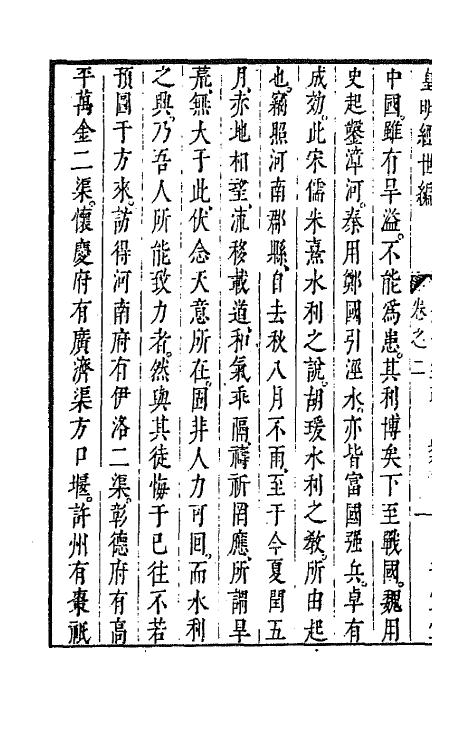 皇明經世編
卷之二
一
中國雖有旱溢。不能爲患。其利博矣下至戰國。魏用
史起鑿漳河。秦用鄭國引涇水。亦皆富國强兵。卓有
成効。此宋儒朱熹水利之說。胡瑗水利之教。所由起
也。竊照河南郡縣。自去秋八月不雨。至于今夏閏五
月。赤地相望。流移載道。和氣乖隔。禱祈罔應。所謂旱
荒。無大于此。伏念天意所在。固非人力可回。而水利
之興。乃吾人所能致力者。然與其徒悔于已往不若
預圖于方來。訪得河南府有伊洛二渠。彰德府有高
平萬金二渠。懷慶府有廣濟渠方口堰。許州有棗祗